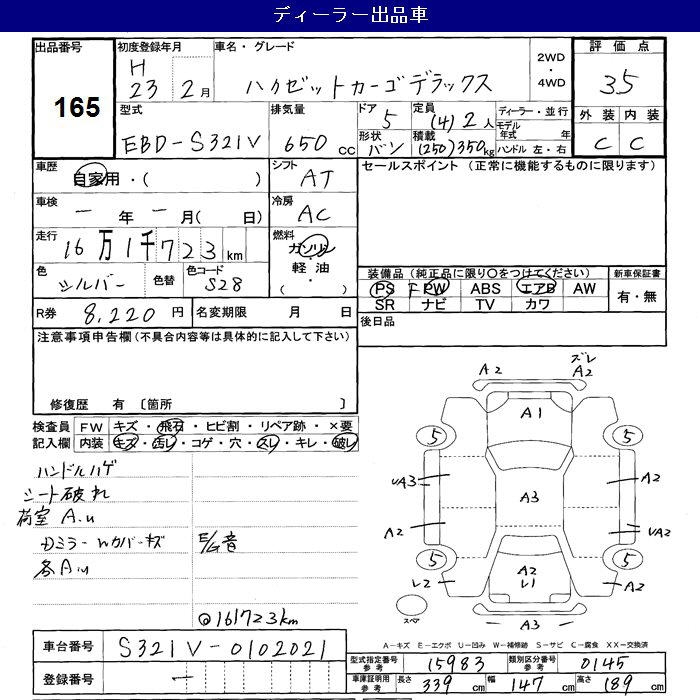 ディーラー出品車
出品番号 165
初度登録年月 H 23年 2月
車名・グレード ハイゼットカーゴデラックス
2WD・4WD
評価点 3.5
型式 EBD-S321V
排気量 650 cc
ドア 5
形状 バン
定員 (4) 2人
積載 (250)350kg
ディーラー・並行
モデル年式 年
ハンドル 左・右
外装 C
内装 C
車歴 自家用・( )
シフト AT
セールスポイント (正常に機能するものに限ります)
車検 ー年ー月( 日)
冷房 AC
走行 16万1千723km
燃料 ガソリン・軽油・
色 シルバー
色替
色コード S28
装備品(純正品に限り○をつけてください)
PS PW ABS エアB AW
SR ナビ TV カワ
新車保証書 有・無
R券 8,220円
名変期限 月 日
後日品
注意事項申告欄(不具合内容等は具体的に記入して下さい)
修復歴 有 〔箇所 〕
検査員記入欄
FW キズ・飛石・ヒビ割・リペア跡・×要
内装 キズ・汚レ・コゲ・穴・スレ・キレ・破レ
ハンドルハゲ
シート破れ
荷室 A.u
Dミラーカバーキズ
E/G音
各A.u
@161723km
A2 ズレ A2
A1
5 5
UA3 A3 A2
A2 UA2
5 5
L2 A2 L1 A2
スペア A3
A-キズ E-エクボ U-凹み W-補修跡 S-サビ C-腐食 XX-交換済
車台番号 S321V-0102021
登録番号 ー
型式指定番号 参考 15983
類別区分番号 参考 0145
車庫証明用 参考 長さ 339cm 幅 147cm 高さ 189cm